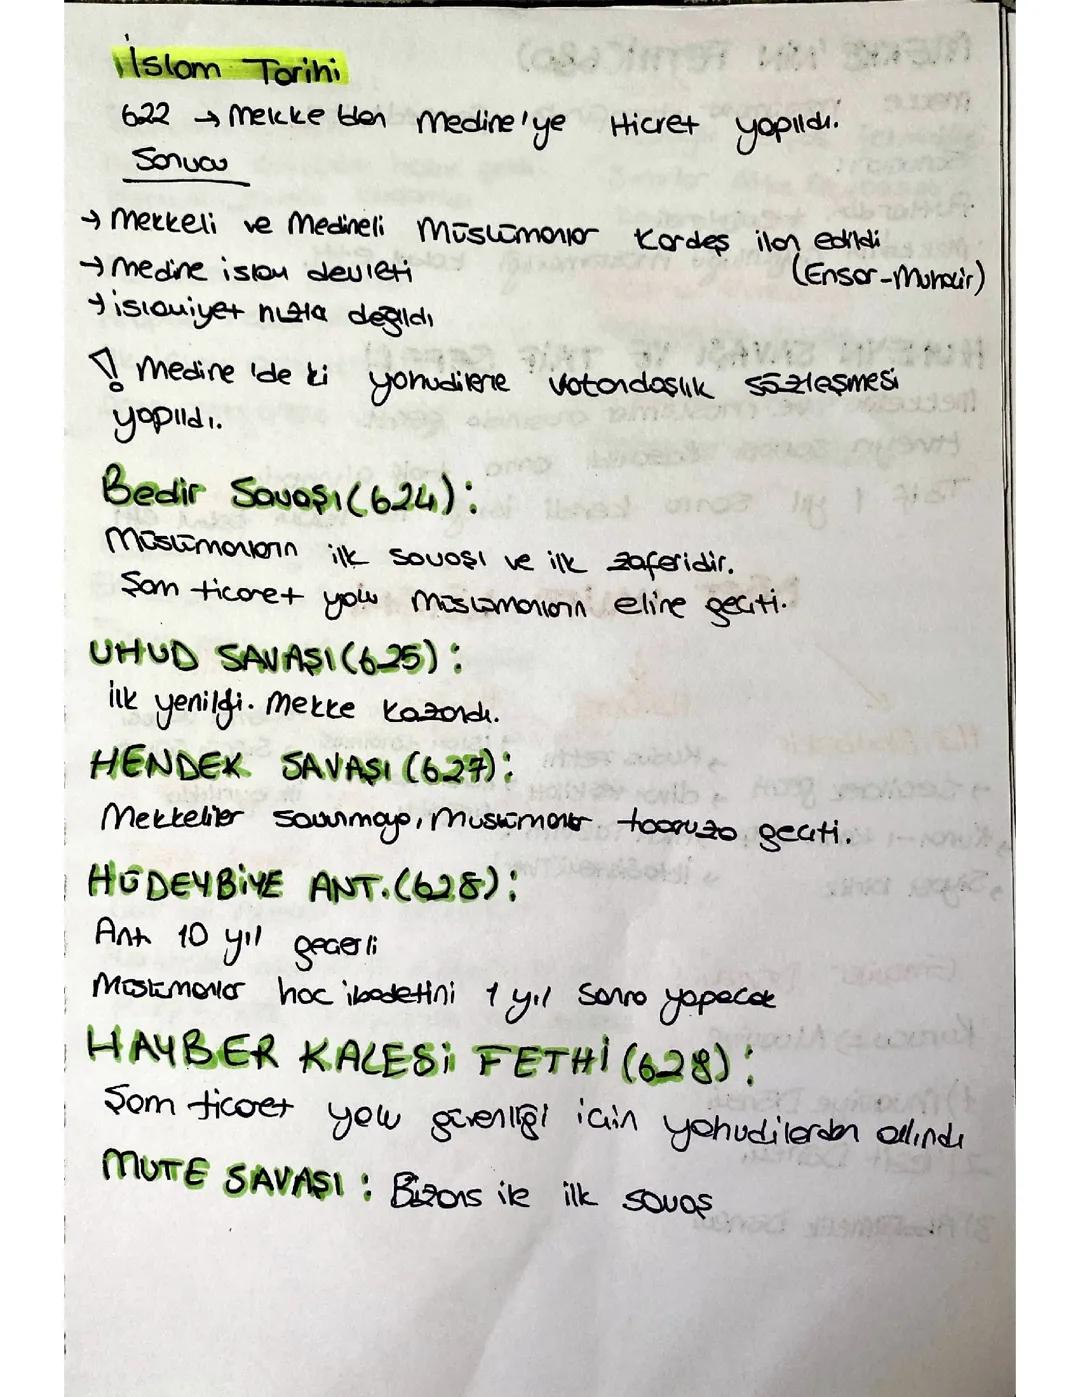 İslam Tarihi
622 → Mekke'den Medine'ye Hicret yapıldı.
Sonucu
→ Mekkeli ve Medineli Müslümanlar Kardeş ilan edildi
(Ensar-Muhacir)
→ Medine islam devleti
→ islamiyet hızla değildi
! Medine'de ki yahudilerle vatandaşlık sözleşmesi
yapıldı.
Bedir Savaşı (624):
Müslümanların ilk savaşı ve ilk zaferidir.
Şam ticaret yolu müslümanların eline geçti.
UHUD SAVAŞI (625):
ilk yenilgi. Mekke kazandı.
HENDEK SAVAŞI (627):
Mekkeliler savunmaya, Müslümanlar taaruza geçti.
HÜDEYBİYE ANT. (628):
Ant 10 yıl geçerli
Müslümanlar hac ibadetini 1 yıl sonra yapacak
HAYBER KALESİ FETHİ (628):
Şam ticaret yolu güvenliği için yahudilerden alındı
MUTE SAVAŞI : Bizans ile ilk savaş